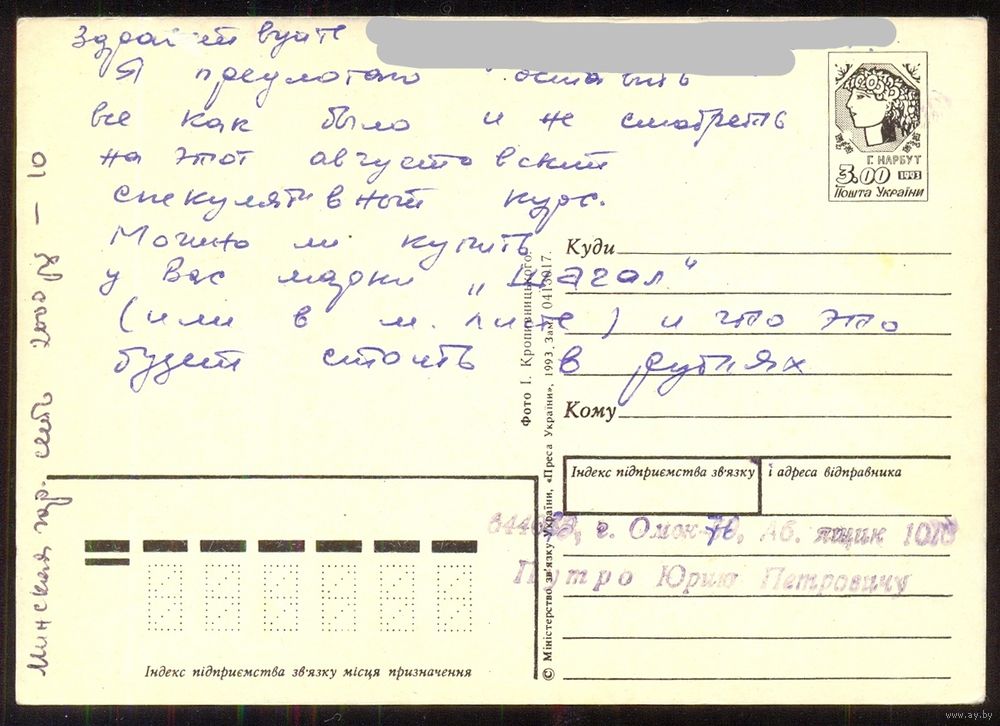 Здравствуйте
Я предлагаю оставить
все как было и не смотреть
на этот августовский
спекулятивный курс.
Можно ли купить
у Вас марки „Шагал"
(или в м. листе) и что это
будет стоить в рублях
Минская гор. сеть 2000 – 10
Г. НАРБУТ
3.00 1993
Пошта України
Куди
Кому
Індекс підприємства зв'язку і адреса відправника
г. Омск-76, Аб. ящик
Юрию Петровичу
Індекс підприємства зв'язку місця призначення
Фото І. Кропивницького.
© Міністерство зв'язку України, «Преса України», 1993. Зам. 0413017.
www.ay.by